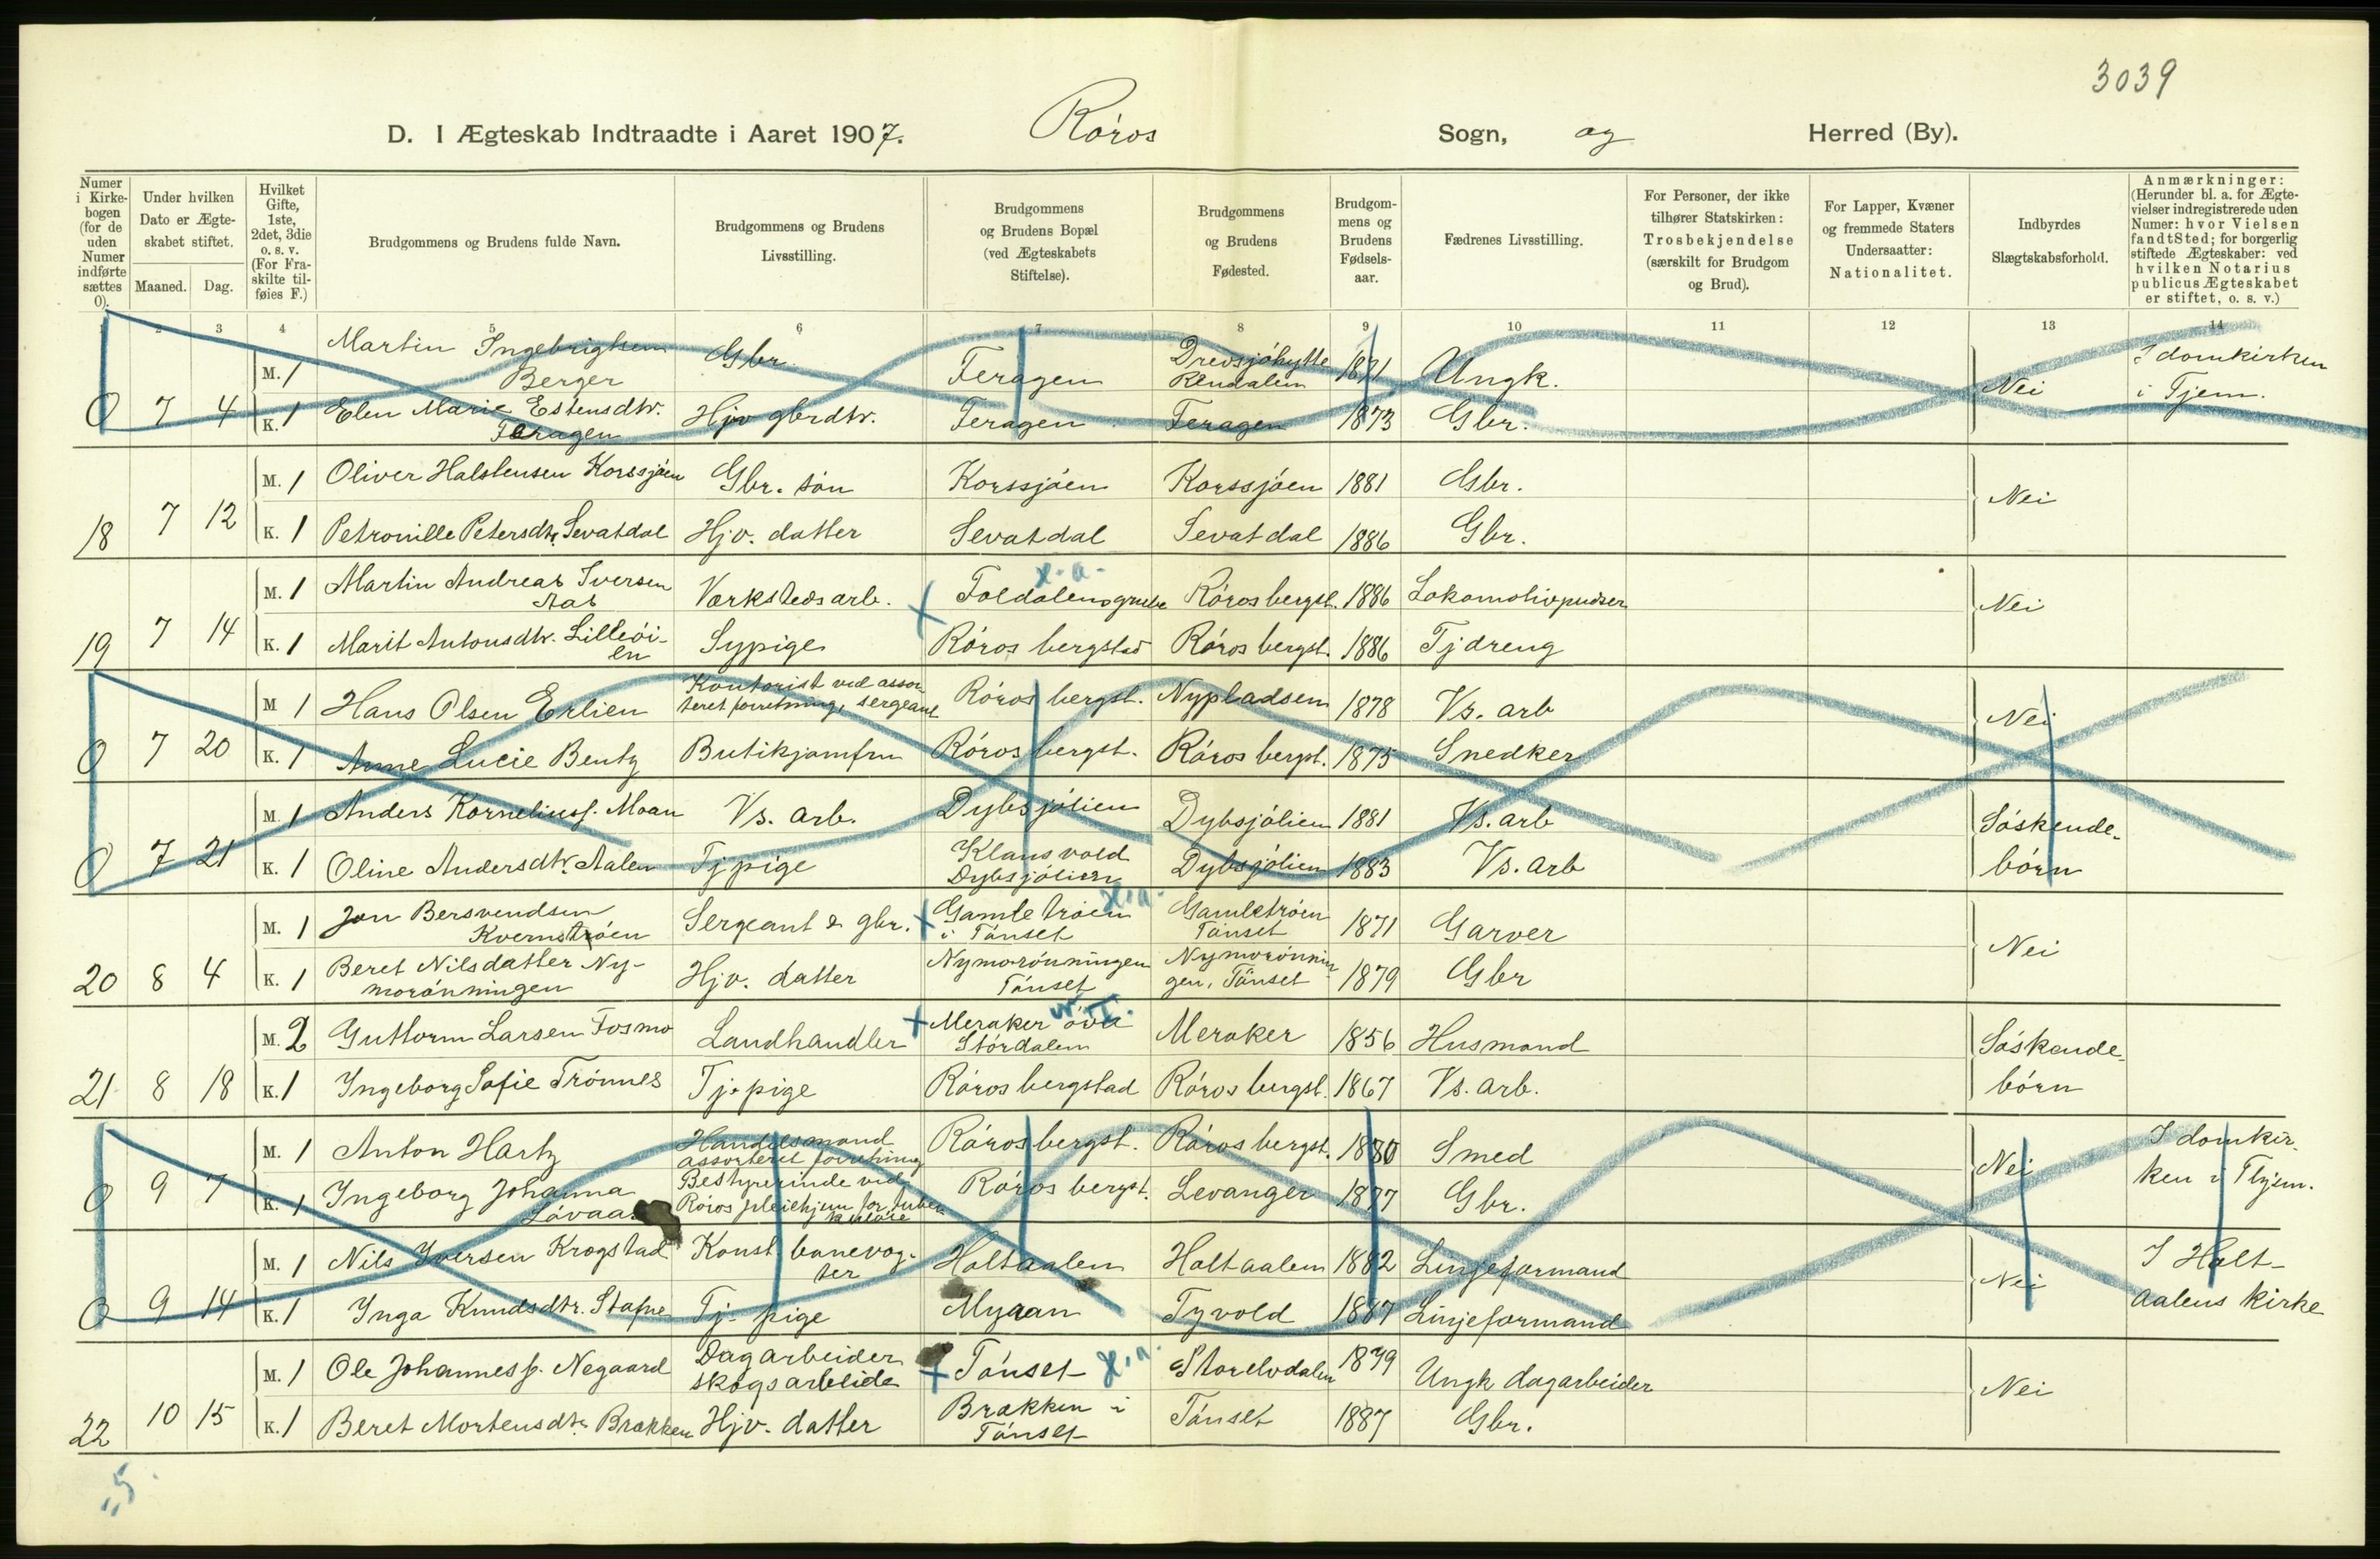 3039
D. I Ægteskab Indtraadte i Aaret 1907. Röros Sogn, og Herred (By).
Numer i Kirkebogen (for de uden Numer indførte sættes 0).
Under hvilken Dato er Ægteskabet stiftet.
Maaned. Dag.
Hvilket Gifte, 1ste, 2det, 3die o. s. v. (For Fraskilte tilføies F.)
Brudgommens og Brudens fulde Navn.
Brudgommens og Brudens Livsstilling.
Brudgommens og Brudens Bopæl (ved Ægteskabets Stiftelse).
Brudgommens og Brudens Fødested.
Brudgommens og Brudens Fødselsaar.
Fædrenes Livsstilling.
For Personer, der ikke tilhører Statskirken: Trosbekjendelse (særskilt for Brudgom og Brud).
For Lapper, Kvæner og fremmede Staters Undersaatter: Nationalitet.
Indbyrdes Slægtskabsforhold.
Anmærkninger: (Herunder bl. a. for Ægtevielser indregistrerede uden Numer: hvor Vielsen fandt Sted; for borgerlig stiftede Ægteskaber: ved hvilken Notarius publicus Ægteskabet er stiftet, o. s. v.)
2 3 4 5 6 7 8 9 10 11 12 13 14
M. 1 Martin Ingebrigtsen Berger Gbr. Feragen Drevsjöhytte Rendalen 1871 Ungk. Nei I domkirken i Tjem.
0 7 4 K. 1 Elen Marie Estensdtr. Feragen Hjv gbrdtr. Feragen Feragen 1873 Gbr.
M. 1 Oliver Halstensen Korssjöen Gbr. sön Korssjöen Korssjöen 1881 Gbr. Nei
18 7 12 K. 1 Petronille Petersdtr. Sevatdal Hjv. datter Sevatdal Sevatdal 1886 Gbr.
M. 1 Martin Andreas Iversen Aas Værkstedsarb. Foldalens grube Röros bergst. 1886 Lokomotivpudser Nei
19 7 14 K. 1 Marit Antonsdtr. Lilleöien Sypige Röros bergstad Röros bergst. 1886 Tjdreng
M 1 Hans Olsen Erlien Kontorist ved assorteret forretning, sergeant Röros bergst. Nypladsen 1878 Vs. arb Nei
0 7 20 K. 1 Anne Lucie Bentz Butikjomfru Röros bergst. Röros bergst. 1875 Snedker
M. 1 Anders Kornelius s. Moan Vs. arb. Dybsjölien Dybsjölien 1881 Vs. arb Söskende-
0 7 21 K. 1 Oline Andersdtr. Aalen Tjpige Klausvold Dybsjölien Dybsjölien 1883 Vs. arb börn
M. 1 Jon Bersvendsen Kvernströen Sergeant & gbr. Gamletröen i Tönset Gamletröen Tönset 1871 Garver Nei
20 8 4 K. 1 Beret Nilsdatter Nymorönningen Hjv. datter Nymorönningen Tönset Nymorönningen, Tönset 1879 Gbr
M. 2 Guttorm Larsen Fosmo Landhandler Meraker övre Stördalen Meraker 1856 Husmand Söskende-
21 8 18 K. 1 Ingeborg Sofie Trönnes Tj. pige Röros bergstad Röros bergst. 1867 Vs. arb. börn
M. 1 Anton Hartz Handelsmand assorteret forretning Röros bergst. Röros bergst. 1880 Smed Nei I domkirken i Thjem.
0 9 7 K. 1 Ingeborg Johanna Lövaas Bestyrerinde ved Röros pleiehjem for tuberkulöse Röros bergst. Levanger 1877 Gbr.
M. 1 Nils Iversen Krogstad Konst. banevogter Holtaalen Holtaalen 1882 Linjeformand Nei I Holtaalens kirke
0 9 14 K. 1 Inga Knudsdtr. Stafne Tj. pige Myran Tyvold 1887 Linjeformand
M. 1 Ole Johannes s. Negaard Dagarbeider skogsarbeide Tönset Storelvdalen 1879 Ungk dagarbeider Nei
22 10 15 K. 1 Beret Mortensdtr. Brækken Hjv. datter Brækken i Tönset Tönset 1887 Gbr.